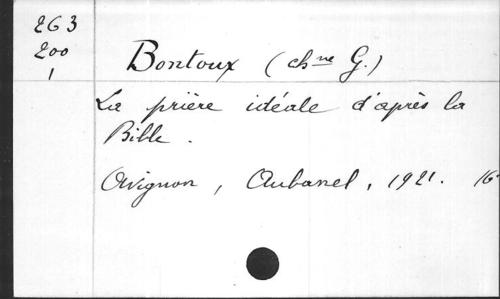 263
200
1
Bontoux (chne G.)
La prière idéale d'après la
Bible.
Avignon, Aubanel, 1921. 16°